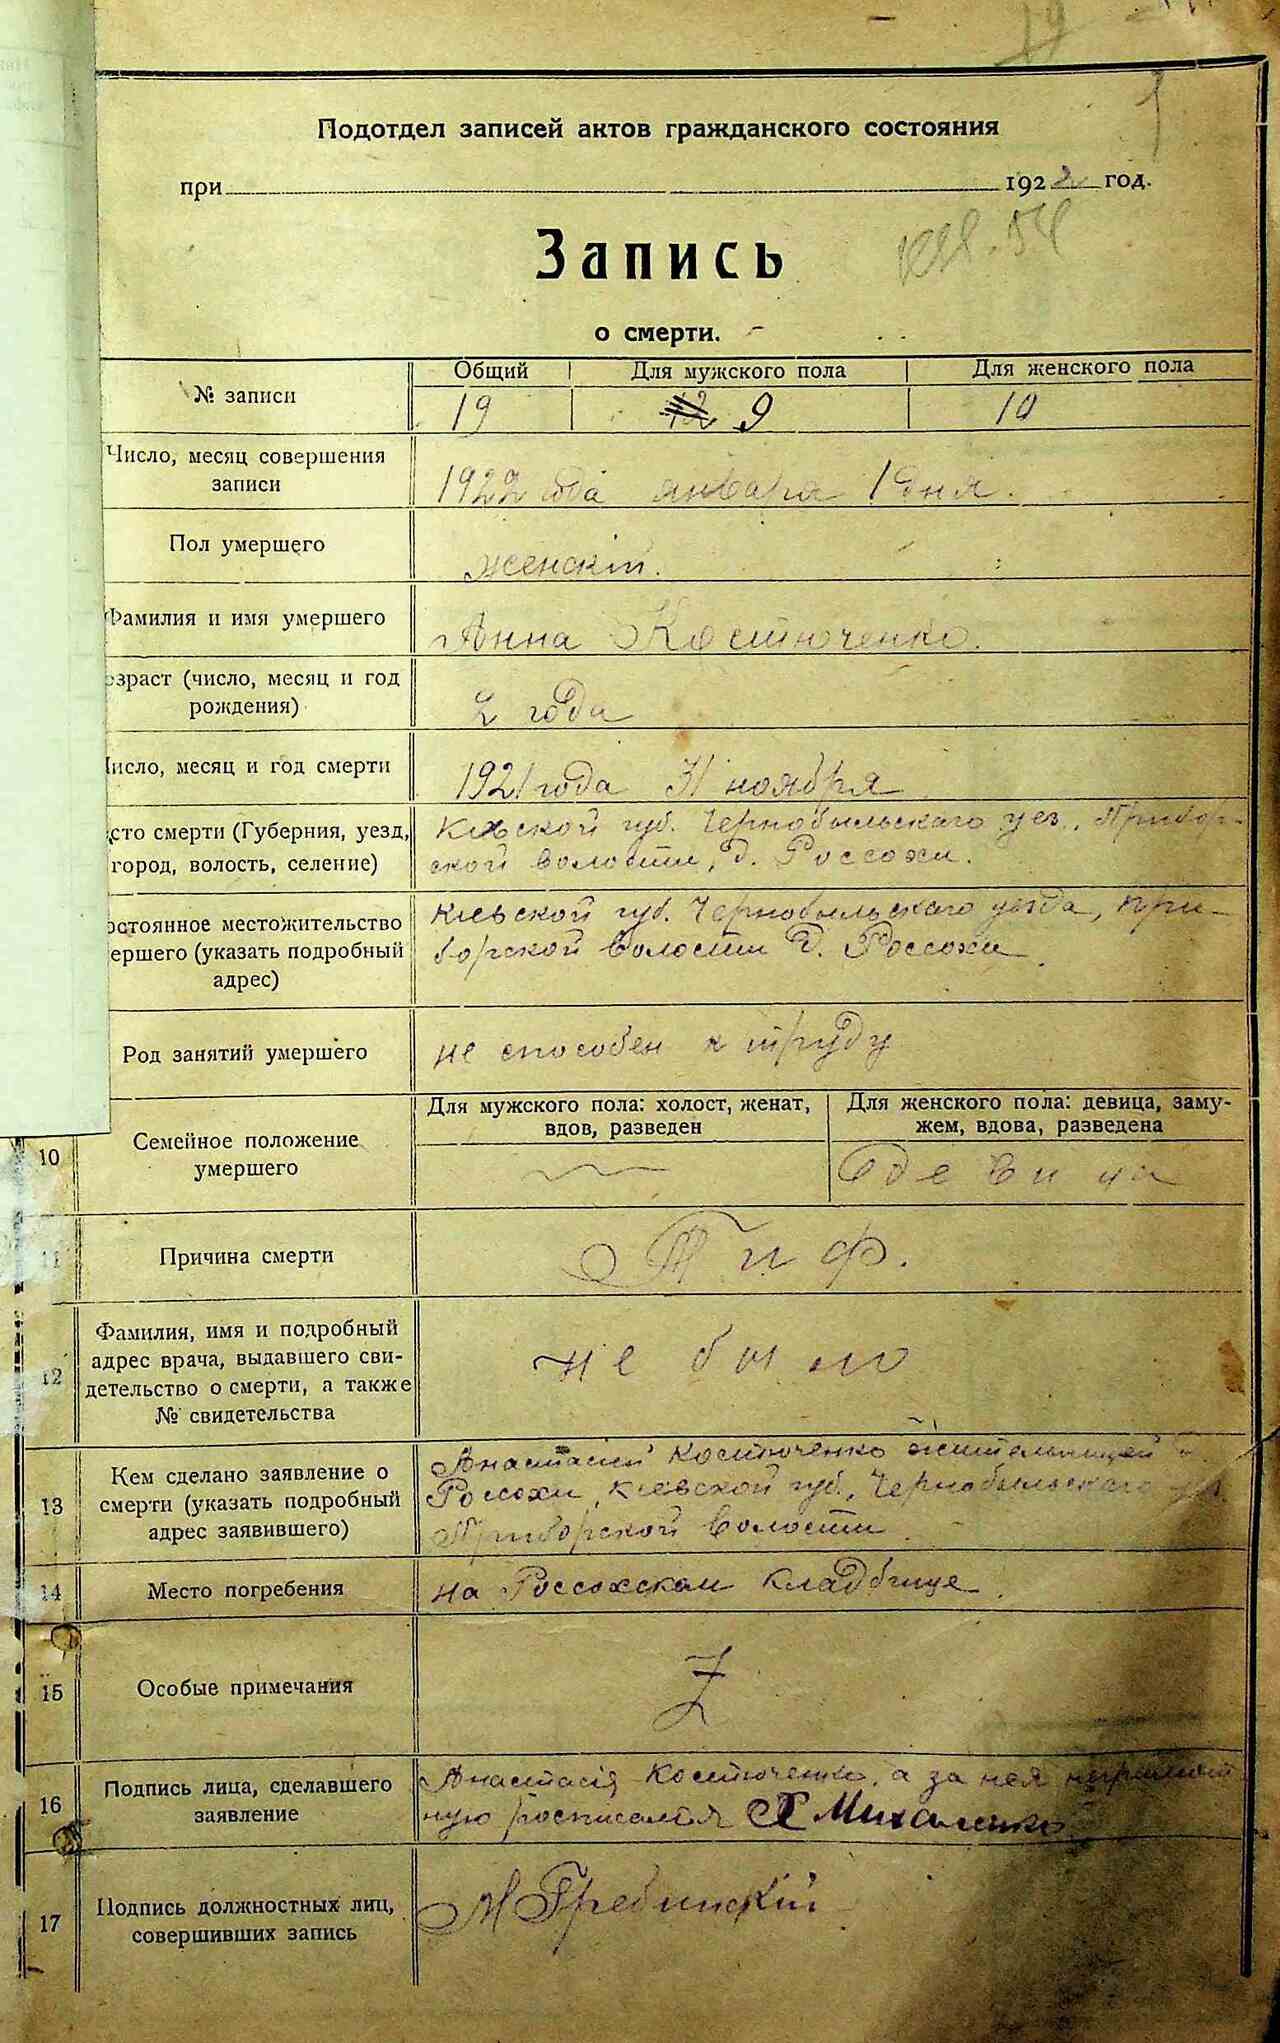 19
1
Подотдел записей актов гражданского состояния
при 1922 год.
Запись
о смерти.
№ записи
Общий | Для мужского пола | Для женского пола
19 | 12 9 | 10
Число, месяц совершения
записи
1922 года января 1 дня.
Пол умершего
женскій.
Фамилия и имя умершего
Анна Костюченко.
озраст (число, месяц и год
рождения)
2 года
исло, месяц и год смерти
1921 года 31 ноября
сто смерти (Губерния, уезд,
город, волость, селение)
Кіевской губ. Чернобыльскаго уез., Прибор-
ской волости, д. Россохи.
остоянное местожительство
ершего (указать подробный
адрес)
Кіевской губ. Чернобыльскаго уезда, При-
борской волости д. Россохи.
Род занятий умершего
не способен к труду
10
Семейное положение
умершего
Для мужского пола: холост, женат,
вдов, разведен
Для женского пола: девица, заму-
жем, вдова, разведена
девица
11
Причина смерти
Тиф.
12
Фамилия, имя и подробный
адрес врача, выдавшего сви-
детельство о смерти, а также
№ свидетельства
не было
13
Кем сделано заявление о
смерти (указать подробный
адрес заявившего)
Анастасіей Костюченко жительницей
Россохи, Кіевской губ., Чернобыльскаго
Приборской волости.
14
Место погребения
на Россохском кладбище.
15
Особые примечания
Z
16
Подпись лица, сделавшего
заявление
Анастасія Костюченко, а за нея неграмот
ную росписался Х Михаленко
17
Подпись должностных лиц,
совершивших запись
М Гребинскій